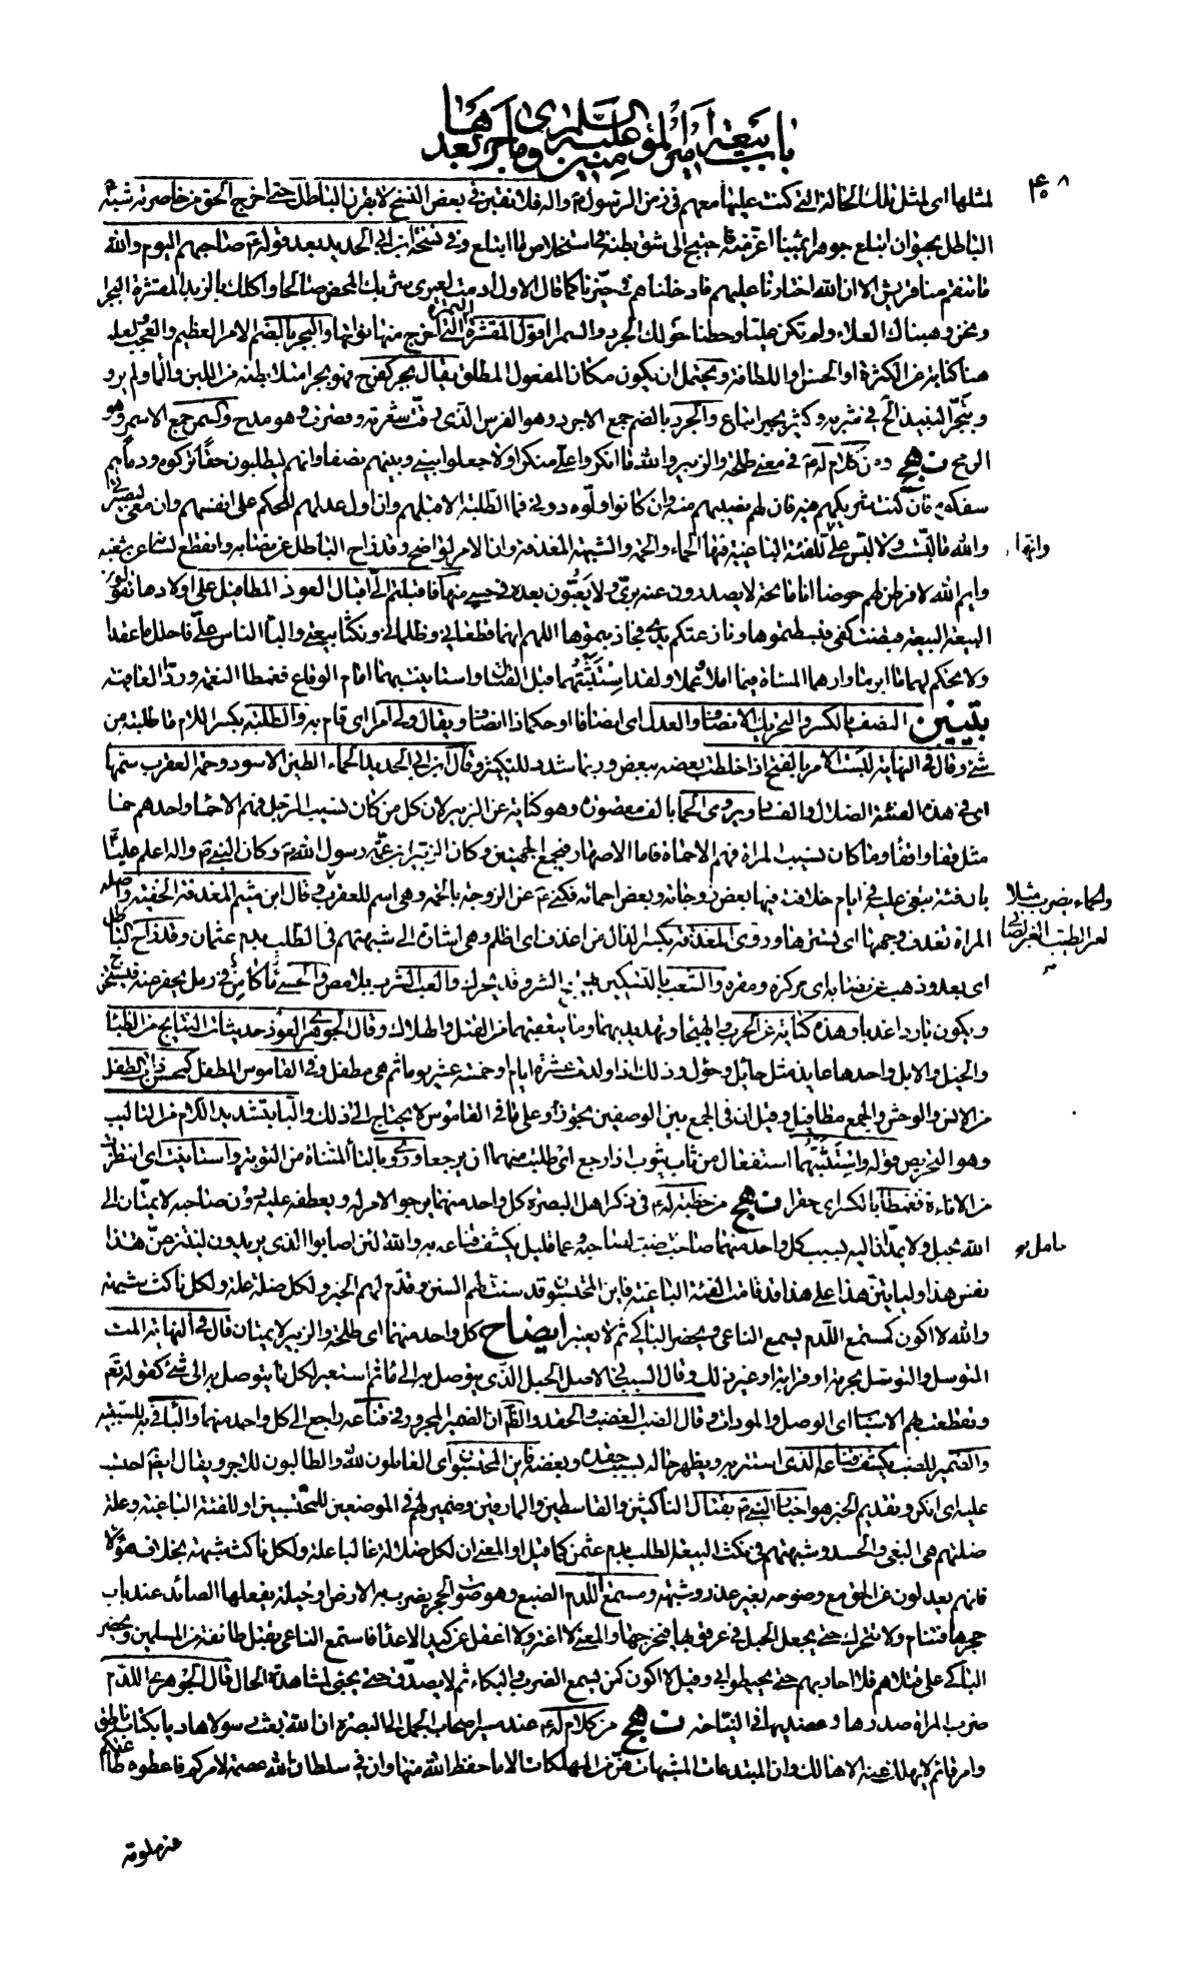 باب بيعة أمير المؤمنين عليه السلم وما جرى بعدها
۴۰۸
لمثلها اى لمثل تلك الحالة التى كنت عليها معهم فى زمن الرسول ص واله فلانقبن فى بعض النسخ لابقرن الباطل حتى اخرج الحق من خاصرته شبه
الباطل بحيوان ابتلع جوهرا ثمينا اعز منه فاحتيج الى شق بطنه فى استخلاص ما ابتلع وفى نسخة ابن ابى الحديد بعد قوله ع صاحبهم اليوم والله
ما تنقم منا قريش الا ان الله اختارنا عليهم فادخلناهم فى حيزنا كما قال الاول ادمت لعمرى شربك المحض صابحا واكلك بالزبد المقشرة البجرا
ونحن وهبناك العلاء ولم تكن عليا وحطنا حولك الجرد والسمرا اقول المقشرة التمرة التى اخرج منها نواتها والبجر بالضم الامر العظيم والعجب ولعله
هنا كناية عن الكثرة او الحسن او اللطافة ويحتمل ان يكون مكان المفعول المطلق يقال بجر كفرح فهو بجر امتلا بطنه من اللبن والماء ولم يرو
وتبجر النبيذ الح فى شربه وكثير بجير اتباع والجرد بالضم جمع الاجرد وهو الفرس الذى رقت شعرته وقصرت وهو مدح والسمر جمع الاسمر وهو
الرمح نهج ومن كلام له ع فى معنى طلحة والزبير والله ما انكروا على منكرا ولا جعلوا بينى وبينهم نصفا وانهم ليطلبون حقا تركوه ودما هم
سفكوه فان كنت شريكهم فيه فان لهم نصيبهم منه وان كانوا ولوه دونى فما الطلبة الا قبلهم وان اول عدلهم للحكم على انفسهم وان معى لبصيرتى
والله ما لبست ولا لبس على للفئة الباغية فيها الحماء والحمة والشبهة المغدفة وان الامر لواضح وقد زاح الباطل عن نصابه وانقطع لسانه عن شغبه
وانها
وايم الله لافرطن لهم حوضا انا ماتحه لا يصدرون عنه برى ولا يعبون بعده فى حسى منها فاقبلتم الى اقبال العوذ المطافيل على اولادها تقولون
البيعة البيعة قبضت كفى فبسطتموها ونازعتكم يدى فجاذبتموها اللهم انهما قطعانى وظلمانى ونكثا بيعتى والبا الناس على فاحلل ما عقدا
ولا تحكم لهما ما ابرما وارهما المساة فيما املا وعملا ولقد استثبتهما قبل القتال واستانيت بهما امام الوقاع فغمطا النعمة وردا العافية
تبيين النصف بالكسر والتحريك الانصاف والعدل اى انصافا او حكما ذا انصاف ويقال ولى امرا اى قام به والطلبة بكسر اللام ما طلبته من
شئ وقال فى النهاية لبست الامر بالفتح اذا خلطت بعضه ببعض وربما شدد للتكثير وقال ابن ابى الحديد الحماء الطين الاسود وحمة العقرب سمها
اى فى هذه الفئة الضلال والفساد ويروى الحما بالف مقصورة وهو كناية عن الزبير لان كل من كان بسبب الرجل فهم الاحماء واحدهم حما
مثل قفا واقفاء وما كان بسبب المراة فهم الاحماة فاما الاصهار فيجمع الجهتين وكان الزبير ابن عمة رسول الله ص وكان النبى ص واله اعلم عليا
بان فئة تبغى عليه فى ايام خلافته فيها بعض زوجاته وبعض احمائه فكنى ع عن الزوجة بالحمة وهى اسم للعقرب وقال ابن ميثم المغدفة الخفية واصله
والحماء يضرب مثلا
المراة تغدف وجهها اى تستره وروى المغدفة بكسر الدال من اغدف اى اظلم وهى اشارة الى شبهتهم فى الطلب بدم عثمان وقد زاح الباطل
لغير الطيب الغير الصافى
اى بعد وذهب عن نصابه اى مركزه ومقره والشغب بالتسكين تهييج الشر وقد يحرك والعب الشرب بلا مص والحسى ماء كامن فى رمل يحفر عنه فيستخرج
ويكون باردا عذبا وهذه كناية عن الحرب والهيجاء وتهديد بهما وما يتعقبهما من القتل والهلاك وقال الجوهرى العوذ حديثات النتايج من الظباء
والخيل والابل واحدها عايذ مثل حايل وحول وذلك اذا ولدت عشرة ايام او خمسة عشر يوما ثم هى مطفل وفى القاموس المطفل كمحسن ذات الطفل
من الانس والوحش والجمع مطافيل وقيل ان فى الجمع بين الوصفين تجوز او على ما فى القاموس لا يحتاج الى ذلك والبا بتشديد اللام من التاليب
وهو التحريص قوله واستثبتهما استفعال من ثاب يثوب اذا رجع اى طلبت منهما ان يرجعا وروى بالتاء المثناة من التوبة واستانيت اى انتظرت
من الاناءة فغمطا بالكسر اى حقرا نهج من خطبة له ع فى ذكر اهل البصرة كل واحد منهما يرجو الامر له ويعطفه عليه دون صاحبه لا يمتان الى
الله بحبل ولا يمدان اليه بسبب كل واحد منهما حامل ضب لصاحبه وعما قليل يكشف قناعه به والله لئن اصابوا الذى يريدون لينتزعن هذا
حامل
نفس هذا ولياتين هذا على هذا قد قامت الفئة الباغية فاين المحتسبون قد سنت لهم السنن وقدم لهم الخبر ولكل ضلة علة ولكل ناكث شبهة
والله لا اكون كمستمع اللدم يسمع الناعى ويحضر الباكى ثم لا يعتبر ايضاح كل واحد منهما اى طلحة والزبير لا يمتان قال فى النهاية المت
التوسل والتوصل بحرمة او قرابة او غير ذلك وقال السبب فى الاصل الحبل الذى يتوصل به الى ماء ثم استعير لكل ما يتوصل به الى شئ كقوله تع
وتقطعت بهم الاسباب اى الوصل والمودات وقال الضب الغضب والحقد والظ ان الضمير المجرور فى قناعه راجع الى كل واحد منهما والباء فى به للسببية
والضمير للضب يكشف قناعه الذى استتر به ويظهر حاله بسبب حقده وبغضه فاين المحتسبون اى العاملون لله والطالبون للاجر ويقال ايضا احتسب
عليه اى انكر وتقديم الخبر هو اخبار النبى ص بقتال الناكثين والقاسطين والمارقين وضمير لهم فى الموضعين للمحتسبين او للفئة الباغية وعلة
ضلتهم هى البغى والحسد وشبهتهم فى نكث البيعة الطلب بدم عثمن كما قيل او المعنى ان لكل ضلالة غالبا علة ولكل ناكث شبهة بخلاف هؤلاء
فانهم يعدلون عن الحق مع وضوحه بغير عذر وشبهة ومستمع اللدم الضبع وهو صوت الحجر يضرب به الارض او حيلة يفعلها الصائد عند باب
حجرها فتنام ولا تتحرك حتى يجعل الحبل فى عرقوبها فيخرجها والمعنى لا اغتر ولا اغفل عن كيد الاعداء فاستمع الناعى بقتل طائفة من المسلمين ويحضر
الباكى على قتلاهم فلا احاربهم حتى يحيطوا بى وقيل لا اكون كمن يسمع الضرب والبكاء ثم لا يصدق حتى يجئ لمشاهدة الحال قال الجوهرى اللدم
ضرب المراة صدرها وعضديها فى النياحة نهج من كلام له ع عند مسير اصحاب الجمل الى البصرة ان الله بعث رسولا هاديا بكتاب ناطق
وامر قائم لا يهلك عنه الا هالك وان المبتدعات المشبهات هن من المهلكات الا ما حفظ الله منها وان فى سلطان الله عصمة لامركم فاعطوه طاعتكم
غير ملومة